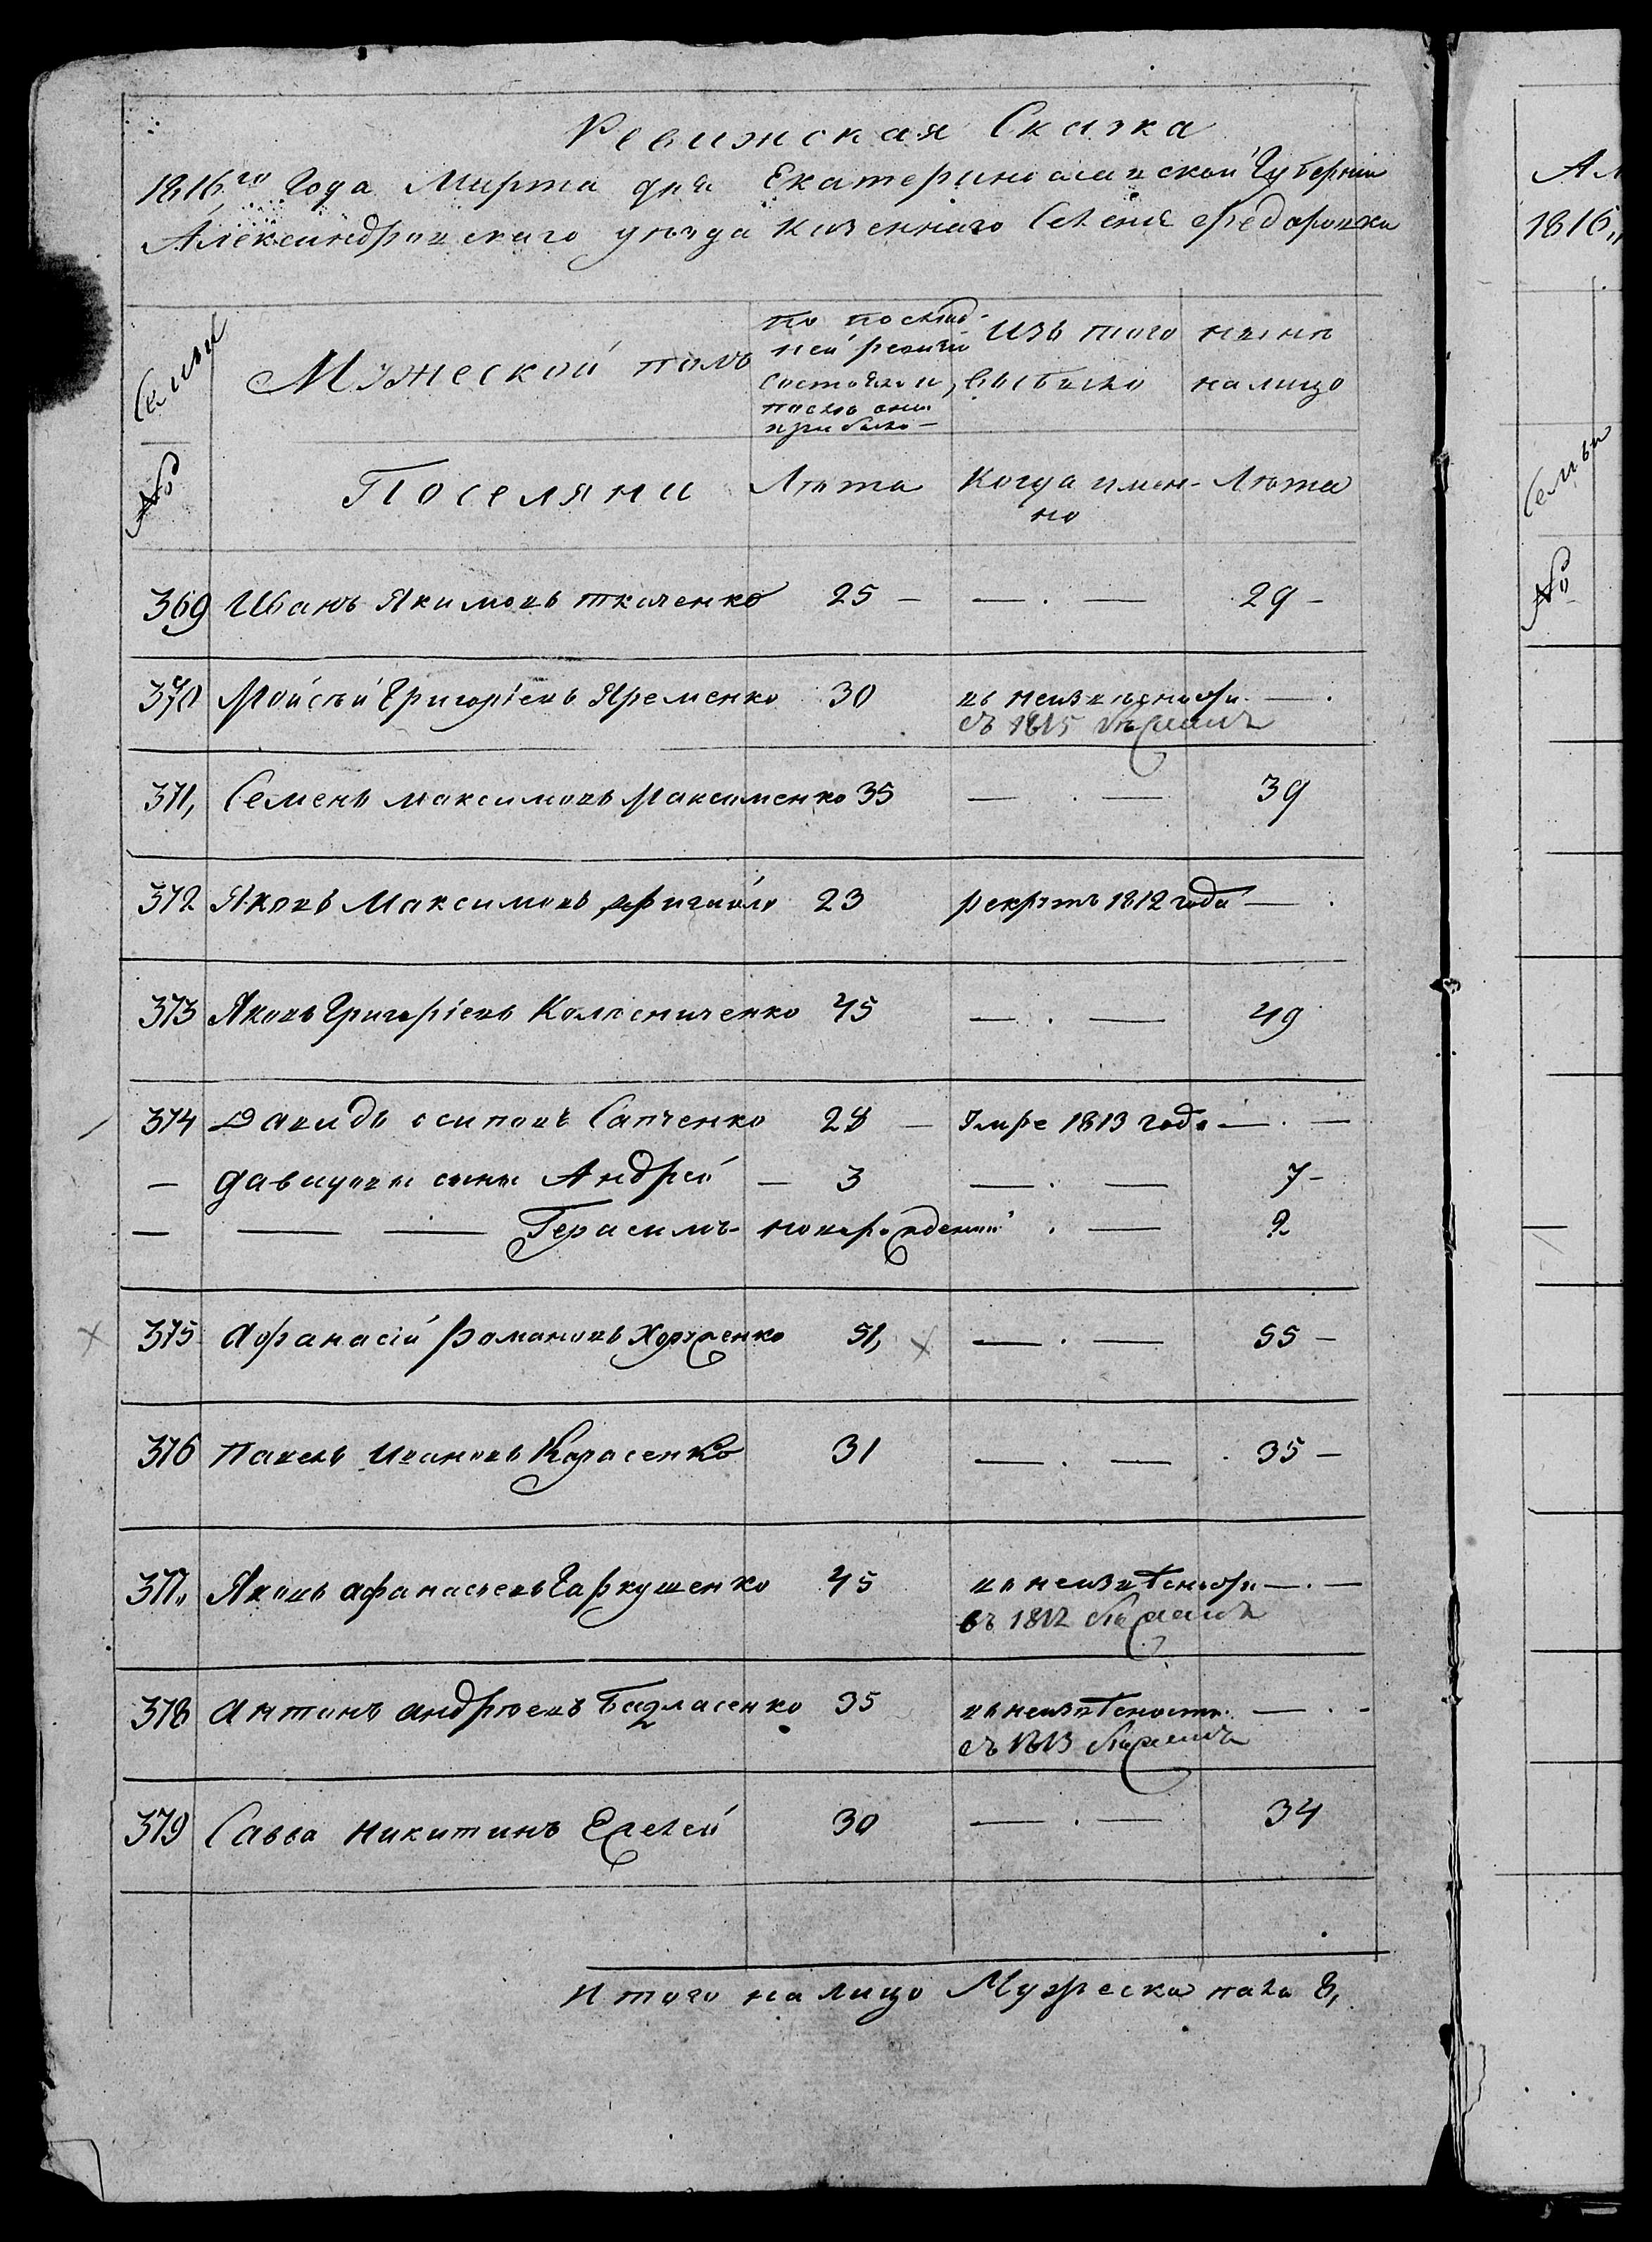 Ревижская Сказка
1816,го Года Марта дня Екатеринославской Губернiи
Александровскаго уезда Казеннаго Селенiя Федоровки
Семьи
№
Мужеской полъ
по послед-
ней ревизiи
состояло и
после оной
прибыло —
Изъ того
выбыло
ныне
налицо
Поселяни
Лета
Когда имен-
но
Лета
369 Иванъ Якимовъ ткаченко 25 — — . — 29 —
370 Мойсѣй Григорiевъ Яременко 30 въ неизвѣстной — .
съ 1815 бѣгахъ
371, Семенъ максимовъ Максименко 35 — . — 39
372 Яковъ Максимовъ 23 рекрутъ 1812 года — .
373 Яковъ Григорiевъ Колесниченко 45 — . — 49
374 Давидъ осиповъ Сапченко 28 — Умре 1813 года — . —
— давидовы сыны Андрей — 3 — . — 7 —
— — — Герасимъ новорожденный . — 2
375 Афанасiй Романовъ Харченко 51, — . — 55 —
376 Павелъ Ивановъ Карасенко 31 — . — 35 —
377,, Яковъ афанасьевъ Гаркушенко 45 въ неизвѣстной — . —
въ 1812 бѣгахъ
378 Антонъ андрѣевъ 35 въ неизвѣстности — . -
съ 1813
379 Савва Никитинъ 30 — . — 34
Итого на лицо Мужеска пола 8,
1816,,
Семьи
№